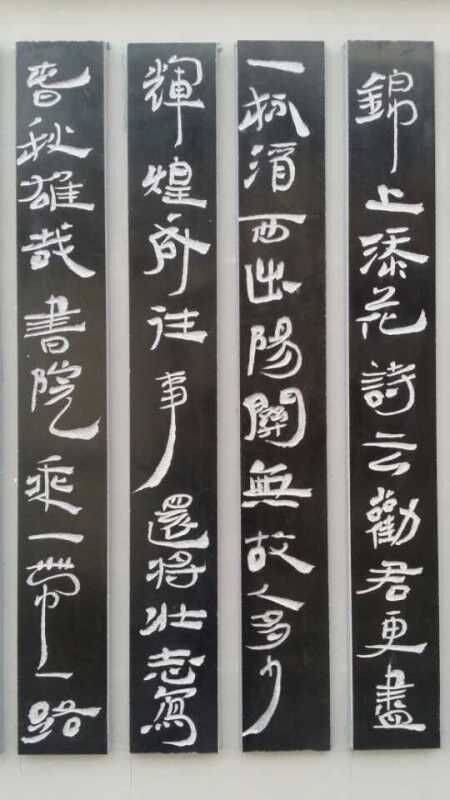 錦上添花詩云勸君更盡
一杯酒西出陽關無故人多少
輝煌往事還將壯志寫
春秋雄哉書院乘一帶一路